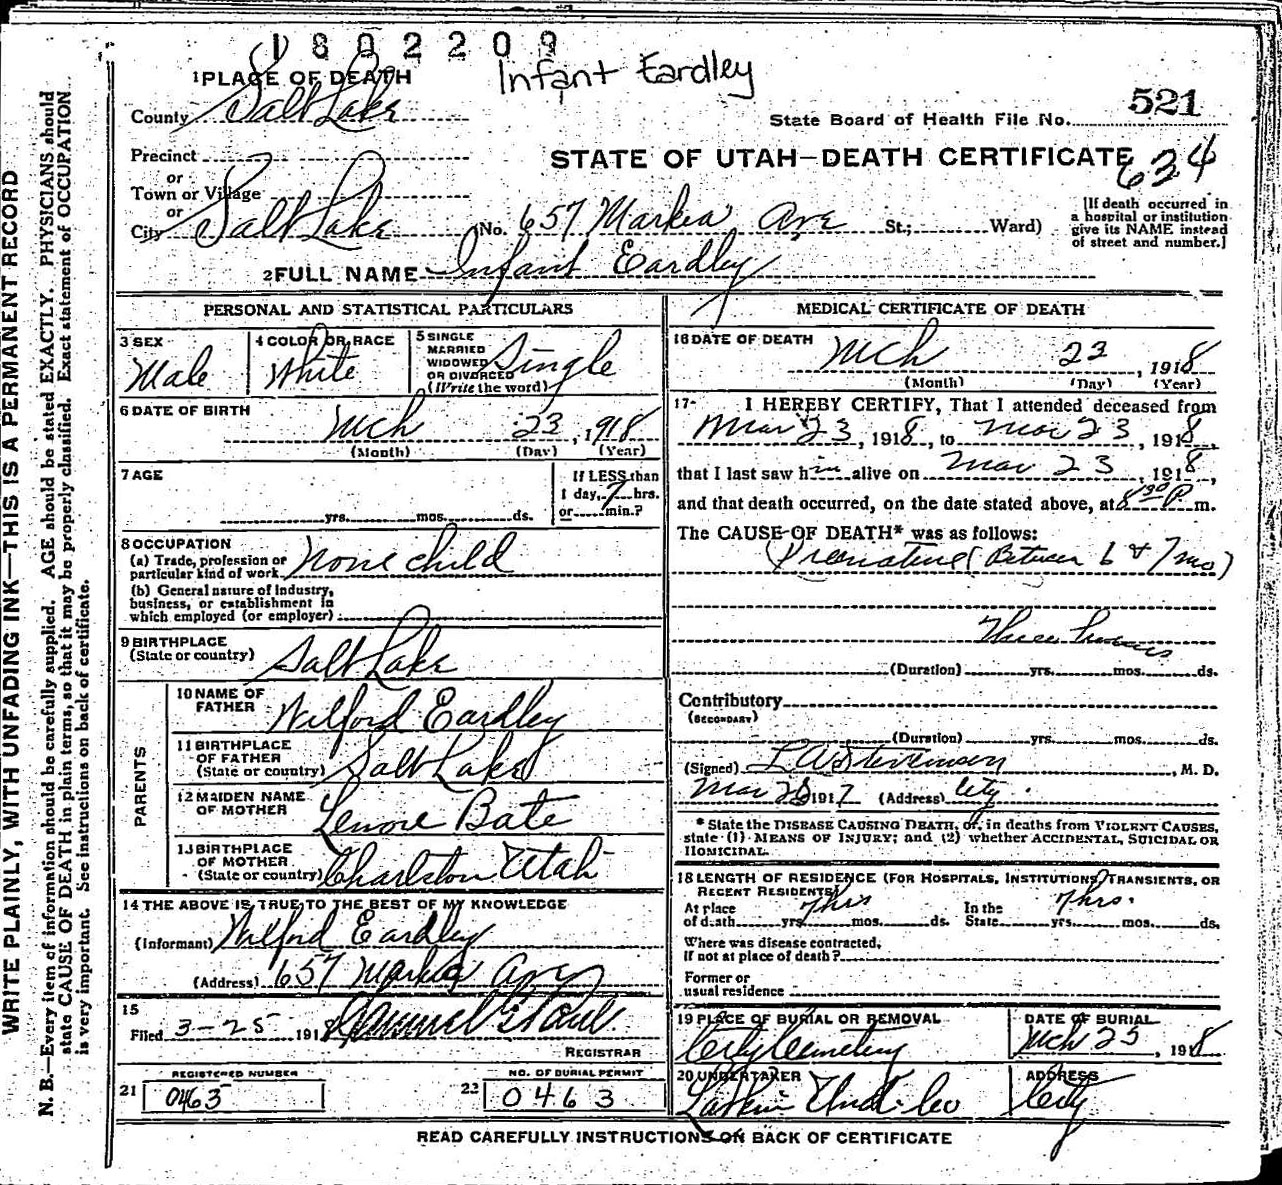 1802209
Infant Eardley
1 PLACE OF DEATH
County Salt Lake
State Board of Health File No. 521
Precinct
STATE OF UTAH—DEATH CERTIFICATE 634
or
Town or Village
or
City Salt Lake No. 657 Markea Ave St.; Ward)
[If death occurred in a hospital or institution give its NAME instead of street and number.]
2 FULL NAME Infant Eardley
PERSONAL AND STATISTICAL PARTICULARS
3 SEX Male
4 COLOR OR RACE White
5 SINGLE MARRIED WIDOWED OR DIVORCED (Write the word) Single
6 DATE OF BIRTH
Mch 23, 1918
(Month) (Day) (Year)
7 AGE
yrs. mos. ds.
If LESS than 1 day, 7 hrs. or min.?
8 OCCUPATION
(a) Trade, profession or particular kind of work None child
(b) General nature of industry, business, or establishment in which employed (or employer)
9 BIRTHPLACE
(State or country) Salt Lake
PARENTS
10 NAME OF FATHER Wilford Eardley
11 BIRTHPLACE OF FATHER (State or country) Salt Lake
12 MAIDEN NAME OF MOTHER Lenore Bate
13 BIRTHPLACE OF MOTHER (State or country) Charlston Utah
14 THE ABOVE IS TRUE TO THE BEST OF MY KNOWLEDGE
(Informant) Wilford Eardley
(Address) 657 Markea Ave
15
Filed 3-25 1918
REGISTRAR
REGISTERED NUMBER
21 0463
NO. OF BURIAL PERMIT
22 0463
MEDICAL CERTIFICATE OF DEATH
16 DATE OF DEATH Mch 23, 1918
(Month) (Day) (Year)
17- I HEREBY CERTIFY, That I attended deceased from
Mar 23, 1918, to Mar 23, 1918,
that I last saw him alive on Mar 23, 1918,
and that death occurred, on the date stated above, at 8 30 P. m.
The CAUSE OF DEATH* was as follows:
Premature (Between 6 & 7 mo)
Three
(Duration) yrs. mos. ds.
Contributory
(SECONDARY)
(Duration) yrs. mos. ds.
(Signed) L A Stevenson, M. D.
Mar 25 1917 (Address) City.
*State the DISEASE CAUSING DEATH, or, in deaths from VIOLENT CAUSES,
state (1) MEANS OF INJURY; and (2) whether ACCIDENTAL, SUICIDAL OR
HOMICIDAL.
18 LENGTH OF RESIDENCE (FOR HOSPITALS, INSTITUTIONS, TRANSIENTS, OR
RECENT RESIDENTS)
At place of death yrs. 7 hrs mos. ds. In the State 7 hrs. yrs. mos. ds.
Where was disease contracted,
if not at place of death?
Former or
usual residence
19 PLACE OF BURIAL OR REMOVAL
City Cemetery
DATE OF BURIAL
Mch 25, 1918
20 UNDERTAKER
Larkin Und. Co
ADDRESS
City
READ CAREFULLY INSTRUCTIONS ON BACK OF CERTIFICATE
WRITE PLAINLY, WITH UNFADING INK—THIS IS A PERMANENT RECORD
N. B.—Every item of information should be carefully supplied. AGE should be stated EXACTLY. PHYSICIANS should
state CAUSE OF DEATH in plain terms, so that it may be properly classified. Exact statement of OCCUPATION
is very important. See instructions on back of certificate.